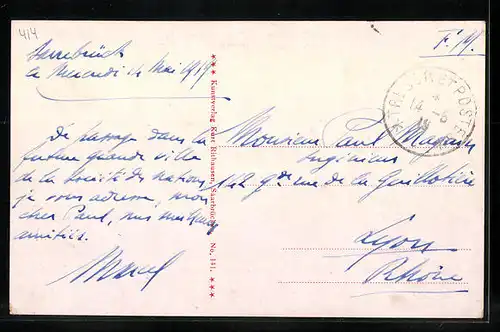 4/4
F. M.
Sarrebrück
Mercredi 14 Mai 1919
TRESOR ET POSTES
*
14 - 5
De passage dans la
future grande ville
de la Société des Nations
je vous adresse, mon
cher Paul, mes meilleures
amitiés.
Marcel
*** Kunstverlag Kurt Rithausen, Saarbrücken No. 141. ***
Monsieur Paul
Ingénieur
142 gde rue de la Guillotière
Lyon
Rhône